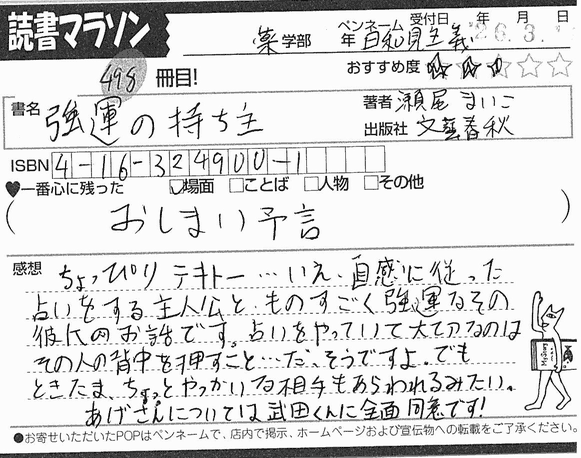 読書マラソン
薬学部 年 ペンネーム 日和見主義 受付日 年 月 日
26.3.
498 冊目!
おすすめ度 ★★★☆☆
書名 強運の持ち主
著者 瀬尾まいこ
出版社 文藝春秋
ISBN 4-16-324900-1
♥一番心に残った ☑場面 □ことば □人物 □その他
( おしまい予言 )
感想 ちょっぴりテキトー…いえ、直感に従った
占いをする主人公と、ものすごく強運なその
彼氏のお話です。占いをやっていて大切なのは
その人の背中を押すこと…だ、そうですよ。でも
ときたま、ちょっとやっかいな相手もあらわれるみたい。
あげさんについては武田くんに全面同意です!
●お寄せいただいたPOPはペンネームで、店内で掲示、ホームページおよび宣伝物への転載をご了承ください。